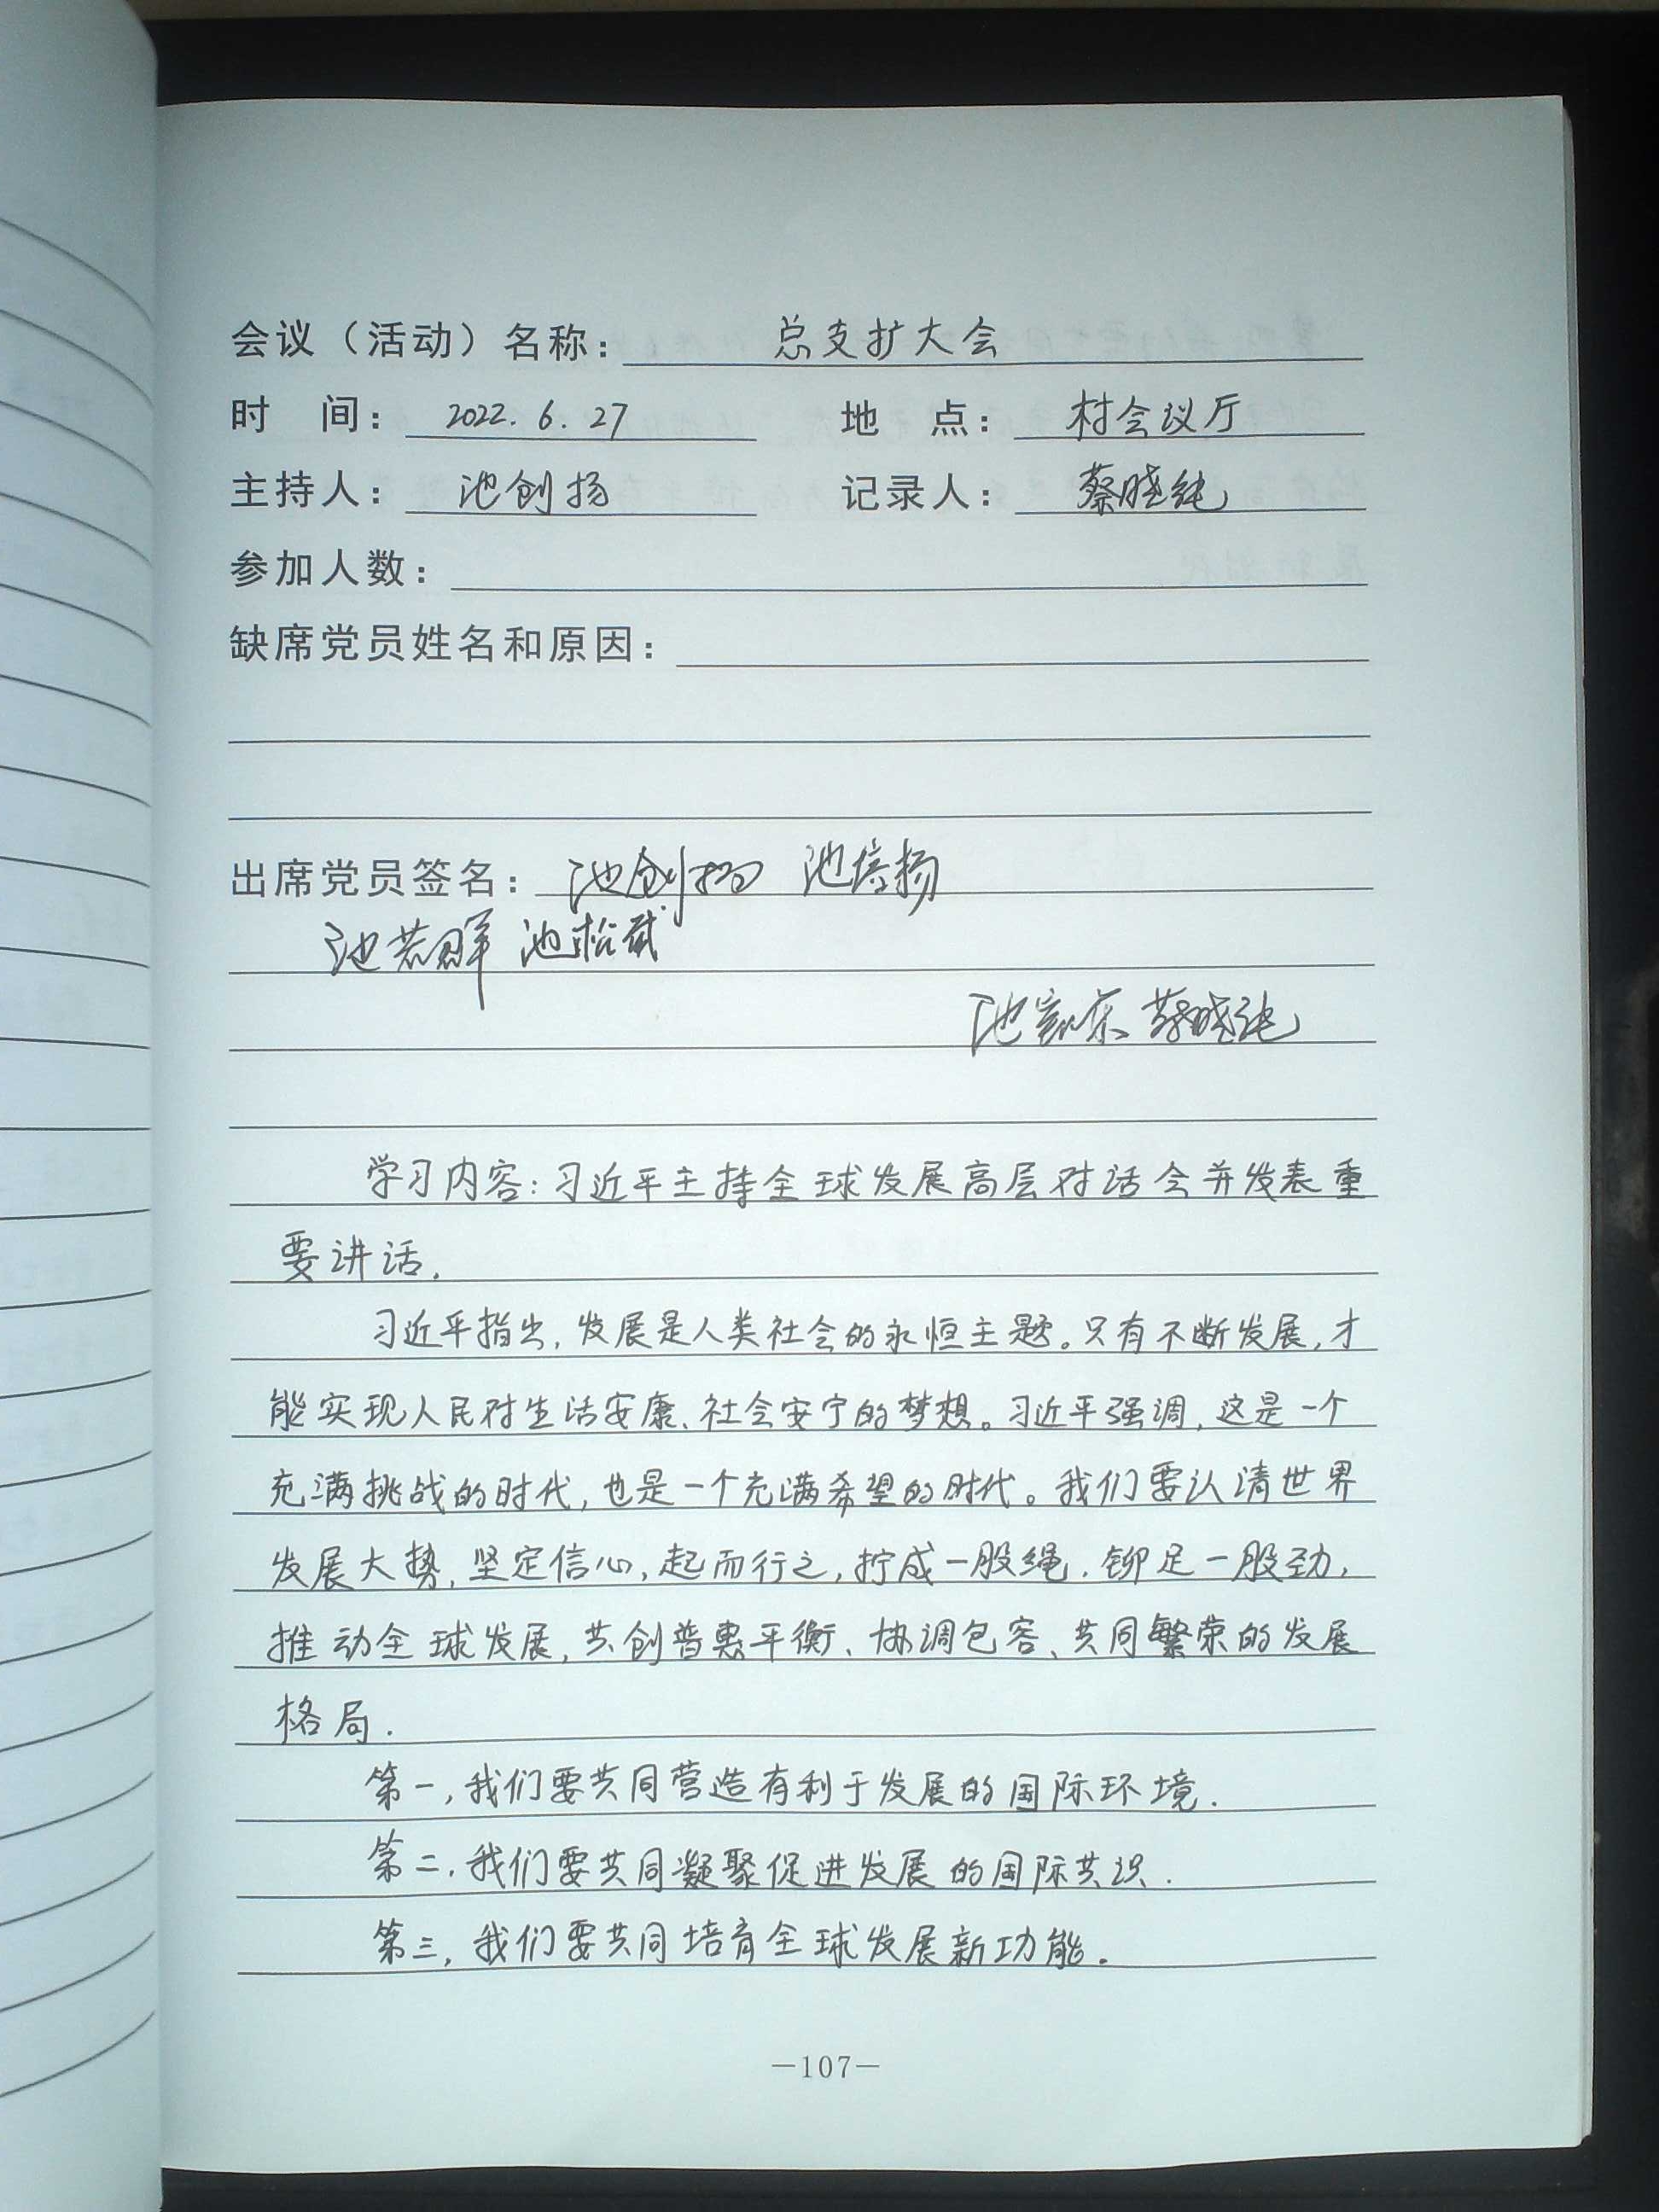 会议（活动）名称：总支扩大会
时 间：2022.6.27 地 点：村会议厅
主持人：池创扬 记录人：蔡晓纯
参加人数：
缺席党员姓名和原因：
出席党员签名：池创扬 池培扬
池若群 池松斌
池家荣 蔡晓纯
学习内容：习近平主持全球发展高层对话会并发表重
要讲话.
习近平指出，发展是人类社会的永恒主题。只有不断发展，才
能实现人民对生活安康、社会安宁的梦想。习近平强调，这是一个
充满挑战的时代，也是一个充满希望的时代。我们要认清世界
发展大势，坚定信心，起而行之，拧成一股绳，铆足一股劲，
推动全球发展，共创普惠平衡、协调包容、共同繁荣的发展
格局.
第一，我们要共同营造有利于发展的国际环境.
第二，我们要共同凝聚促进发展的国际共识.
第三，我们要共同培育全球发展新功能.
—107—